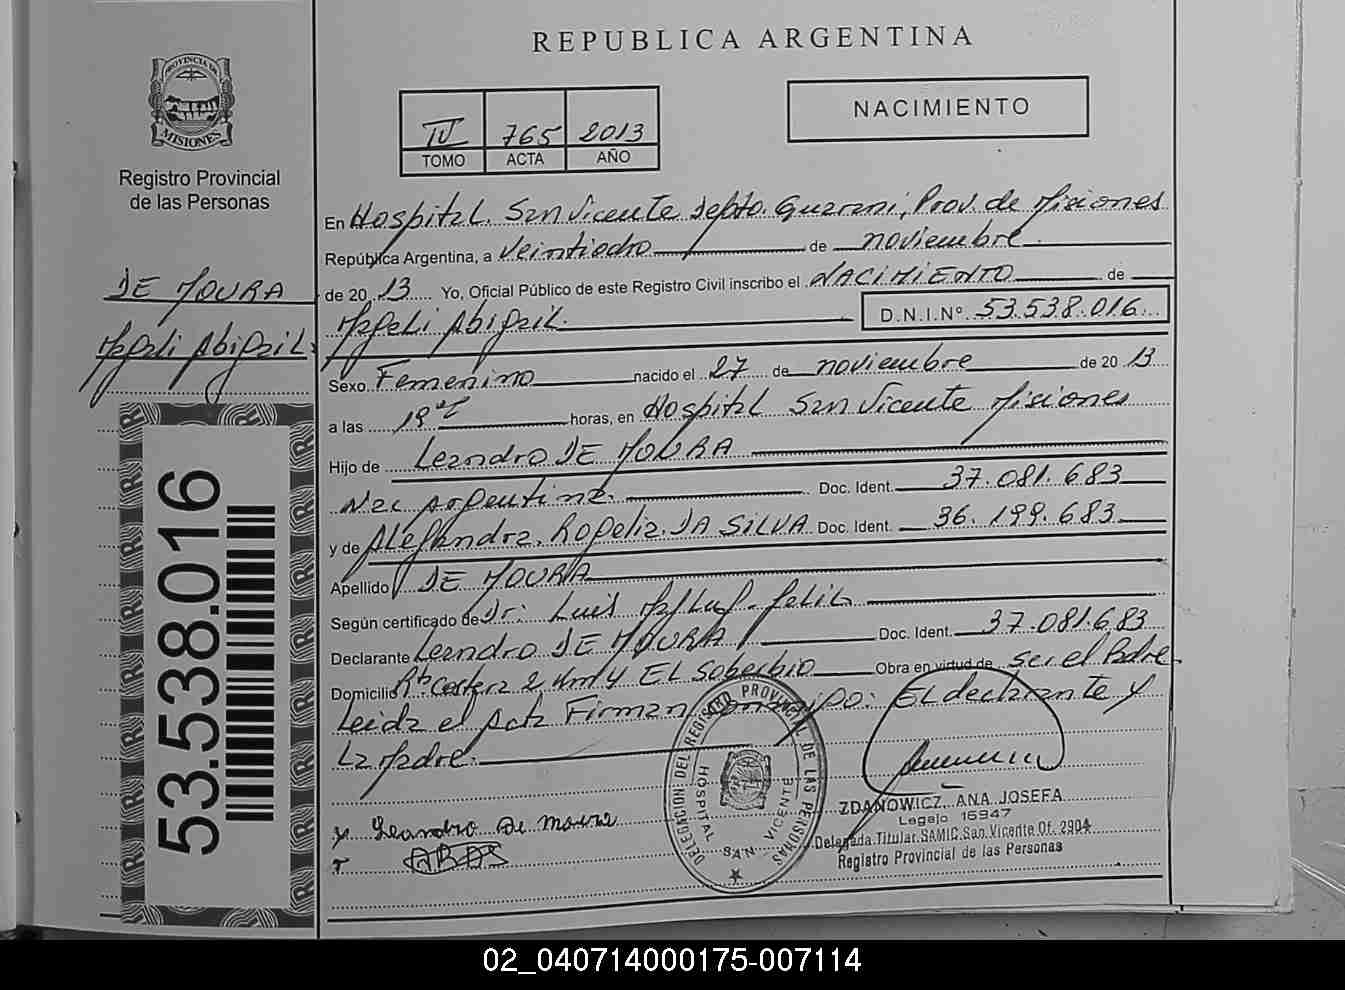 REPUBLICA ARGENTINA
PROVINCIA DE
MISIONES
Registro Provincial
de las Personas
IV 765 2013
TOMO ACTA AÑO
NACIMIENTO
En Hospital San Vicente depto. Guarani, Prov. de Misiones
República Argentina, a veintiocho de noviembre
de 20 13 Yo, Oficial Público de este Registro Civil inscribo el NACIMIENTO de
Magali Abigail D.N.I.Nº 53.538.016
DE MOURA
Magali Abigail
Sexo Femenino nacido el 27 de noviembre de 20 13
a las 19 horas, en Hospital San Vicente Misiones
Hijo de Leandro DE MOURA
Nac Argentina Doc. Ident. 37.081.683
y de Alejandra Rogelia DA SILVA Doc. Ident. 36.199.683
Apellido DE MOURA
Según certificado de Dr: Luis
Declarante Leandro DE MOURA Doc. Ident. 37.081.683
Domicilio El Soberbio Obra en virtud de ser el Padre
Leida el Acta Firman conmigo: El declarante y
La Madre.
x Leandro De Moura
DELEGACION DEL REGISTRO PROVINCIAL DE LAS PERSONAS
HOSPITAL SAN VICENTE
ZDANOWICZ, ANA JOSEFA
Legajo 16947
Delegada Titular SAMIC San Vicente Of. 2904
Registro Provincial de las Personas
53.538.016
02_040714000175-007114